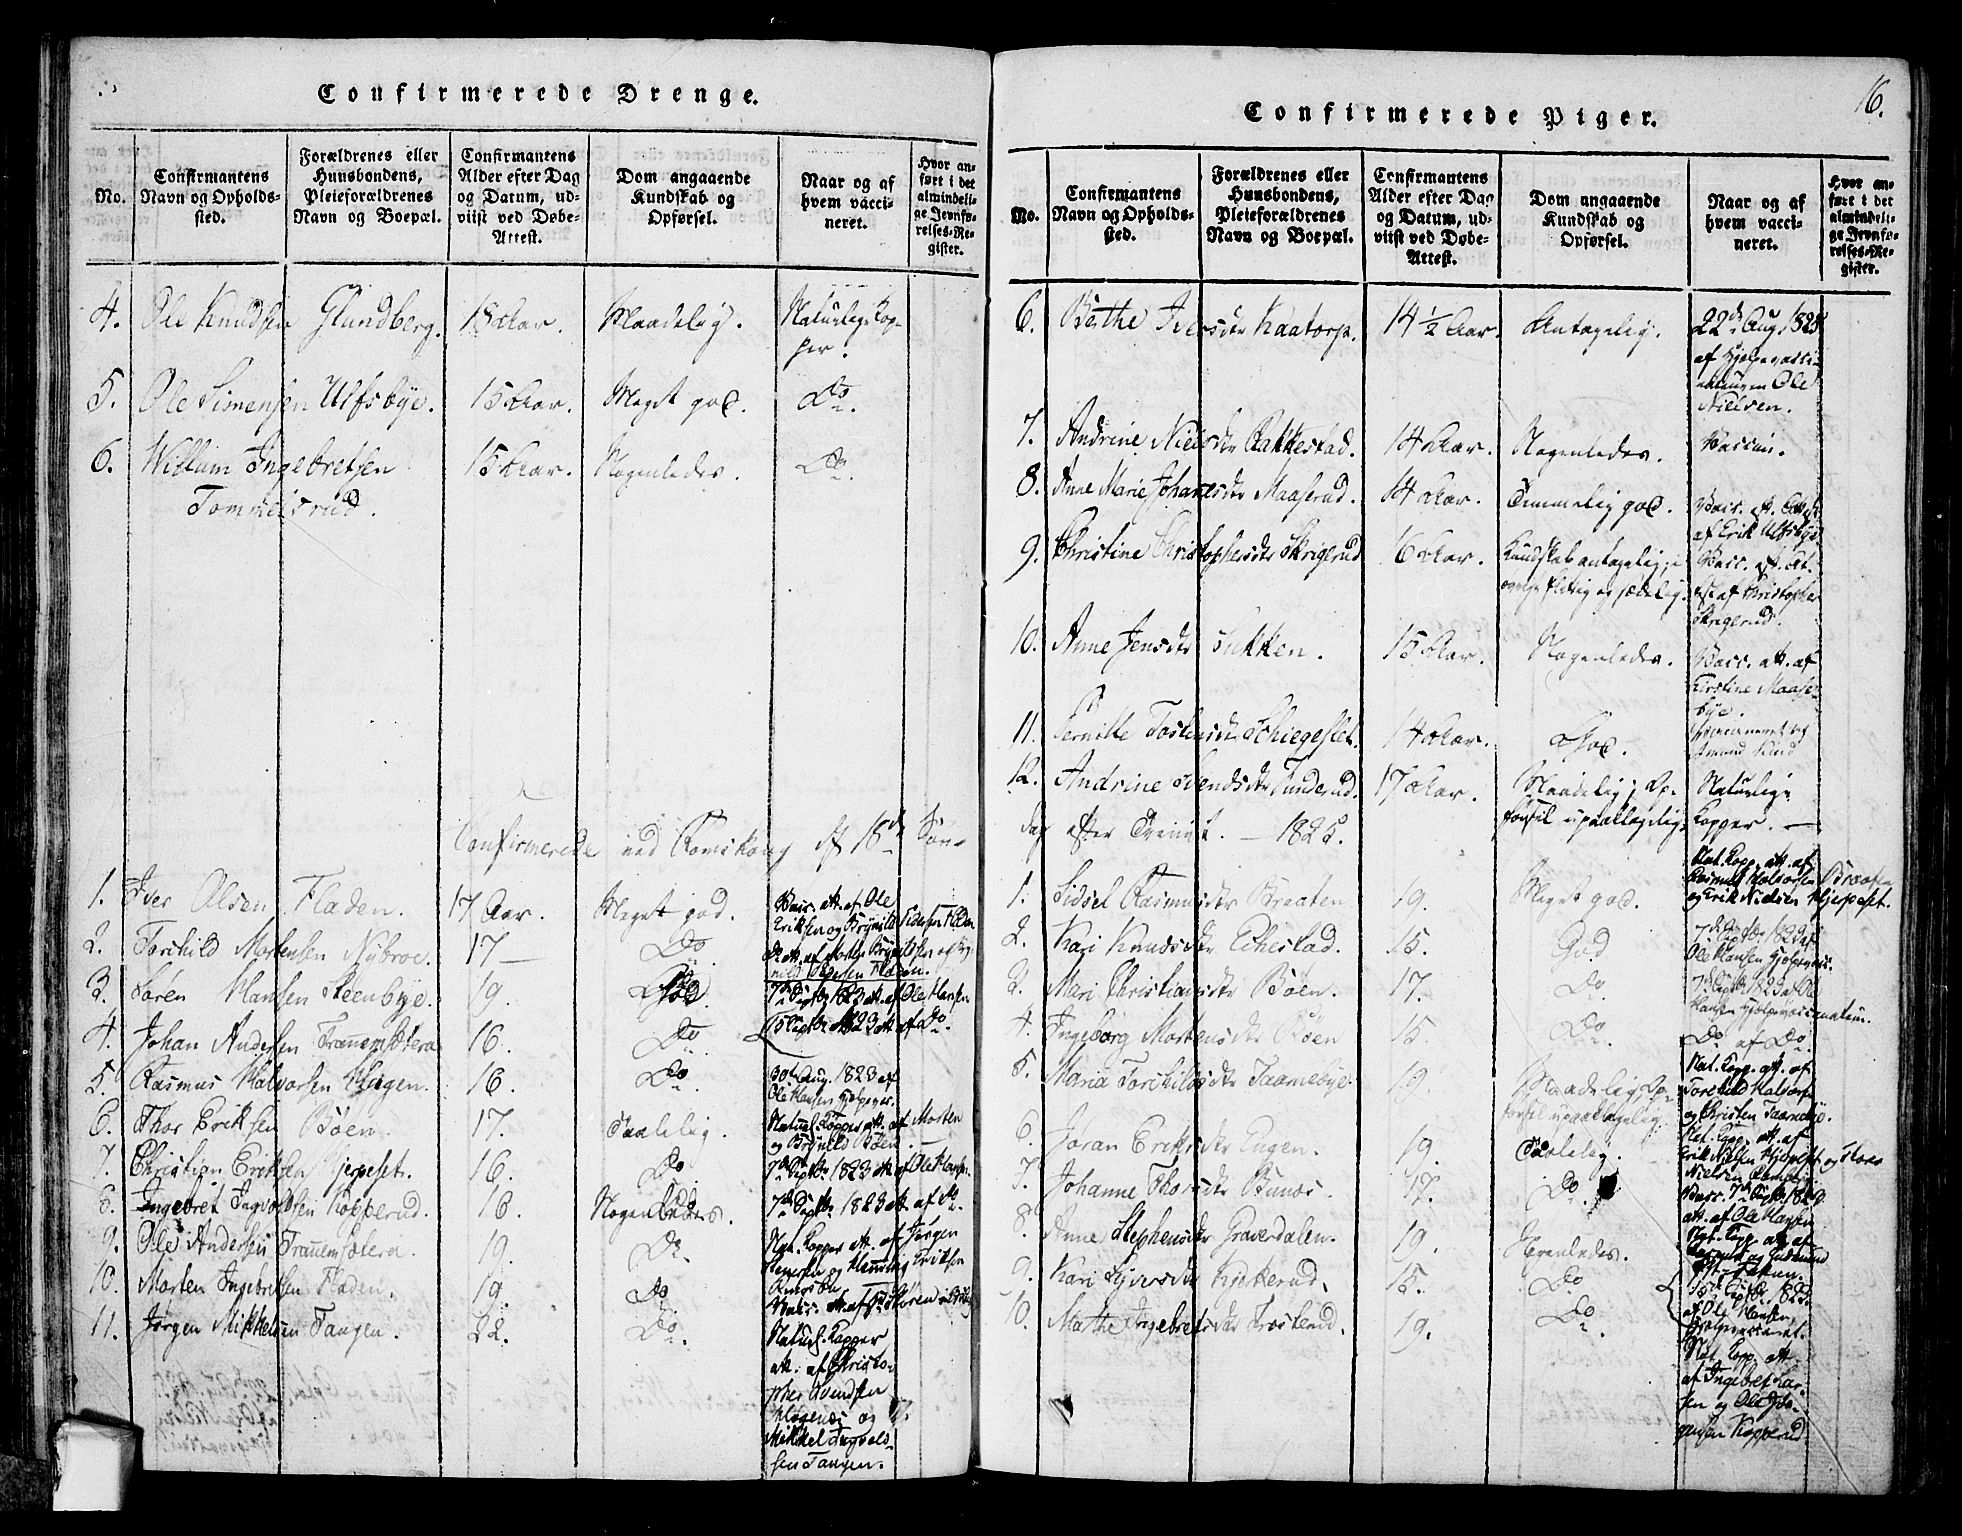 Confirmerede Drenge.
No.
Confirmantens Navn og Opholds-sted.
Forældrenes eller Huusbondens, Pleieforældrenes Navn og Boepæl.
Confirmantens Alder efter Dag og Datum, ud-viist ved Døbe-Attest.
Dom angaaende Kundskab og Opførsel.
Naar og af hvem vacci-neret.
Hvor an-ført i det almindeli-ge Jevnfø-relses-Re-gister.
4. Ole Knudsen Glundberg. 15 Aar. Maadelig. Naturlige Kop-
per.
5. Ole Simensen Ulfsbye. 15 Aar. Meget god. Do.
6. Willum Ingebretsen 15 Aar. Nogenledes. Do.
Tommelsrud.
Confirmerede ved Romskoug 18de Søn-
1. Iver Olsen Fladen. 17 Aar. Meget god. Vacc. att. af Ole
Eriksen og Brynild Pedersen Fladen
2. Torchild Mortensen Nybroe. 17 — Do
Pedersen Fladen.
3. Søren Hansen Steenbye. 19. God 7de Septbr 1823 att. af Ole Hansen
4. Johan Andersen Tranemsætera 16. Do 15 Septbr 1823 att. af Do.
5. Rasmus Halvorsen Hagen. 16. Do 30te Aug. 1823 af
Ole Hansen Hjelpevac.
6. Thor Eriksen Böen. 17. Taalelig. Naturl. Kopper att. af Morten
og Brynild Böen.
7. Christian Eriksen Hjerpeset. 16. Do 7de Septbr 1823 att. af Ole Hansen.
8. Ingebret Ingvoldsen Kopperud. 16. Nogenledes. 7de Septbr 1823 att. af Do.
9. Ole Andersen Tranemsætera. 19. Do. Nat. Kopper att. af Jørgen
og Henning Eriksen
10. Morten Ingebretsen Fladen. 19. Do
11. Jørgen Mikkelsen Tangen. 22. Do. Naturl. Kopper
att. af Christo-
pher Svendsen
og
Mikkel Ingvold-
sen Tangen.
16.
Confirmerede Piger.
No.
Confirmantens Navn og Opholds-sted.
Forældrenes eller Huusbondens, Pleieforældrenes Navn og Boepæl.
Confirmantens Alder efter Dag og Datum, ud-viist ved Døbe-Attest.
Dom angaaende Kundskab og Opførsel.
Naar og af hvem vacci-neret.
Hvor an-ført i det almindeli-ge Jevnfø-relses-Re-gister.
6. Berthe Iversdtr Kaatorp. 14 1/2 Aar. Antagelig. 22de Aug. 1825
af Hjelpevacci-
nateuren Ole
Nielsen.
7. Andrine Nielsdtr Rakkestad. 14 Aar. Nogenledes. Vaccin.
8. Anne Marie Johansdtr Maaserud. 14 Aar. Temmelig god. Vacc. eft. Att.
af Erik Ulfsbye.
9. Christine Christophersdtr Skrigerud 16 Aar. Kundskab antagelig, i
øvrigt flittig og sædelig. Vacc. eft. At-
test af Christopher
Skrigerud.
10. Anne Jensdtr Sukken. 15 Aar. Nogenledes. Vacc. att. af
Kirstine Maaser-
bye.
11. Pernille Tostensdtr Schiegeslet. 14 Aar. God. Vaccineret af
12. Andrine Svendsdtr Tunderud. 17 Aar. Maadelig; Op-
førsel upaaklagelig. Naturlige
Kopper. —
dag efter Trinit. — 1825.
1. Sidsel Rasmusdtr Braaten 19. Meget god. Nat. Kopp. att. af
Rasmus Halvorsen Braaten
og Erik Nielsen Hjerpeset.
2. Kari Knudsdtr Echestad. 15. God 7de Septbr 1823 af
Ole Hansen Hjelpevac.
3. Mari Christiansdtr Böen. 17. Do 7de Septbr 1823 af Ole
Hansen Hjelpevaccinateur.
4. Ingeborg Mortensdtr Böen 15. Do Do af Do.
5. Maria Torchildsdtr Taarnebye. 19. Maadelig, Op-
førsel upaaklagelig. Nat. Kopp. att. af
Torchild Halvorsen
og Christen Taarnebye.
6. Joran Eriksdtr Eugen. 19. Taalelig. Nat. Kopp. att. af
Erik Nielsen Hjerpeset og
Nielsen
7. Johanne Thorsdtr Bunæs. 17. Do Vacc. 7de Septbr 1823
att. af Ole Hansen
8. Anne Stephensdtr Graverdalen. 19. Nogenledes. Nat. Kopp. att. af
9. Kari Syversdtr Kjekerud. 15. Do 15de Septbr 1823
af Ole Hansen,
Hjelpevaccinat.
10. Marthe Ingebretsdtr Troskerud. 19. Do. Nat. Kopp. att.
af Ingebret Lar-
sen og Ole Jør-
gensen Kopperud